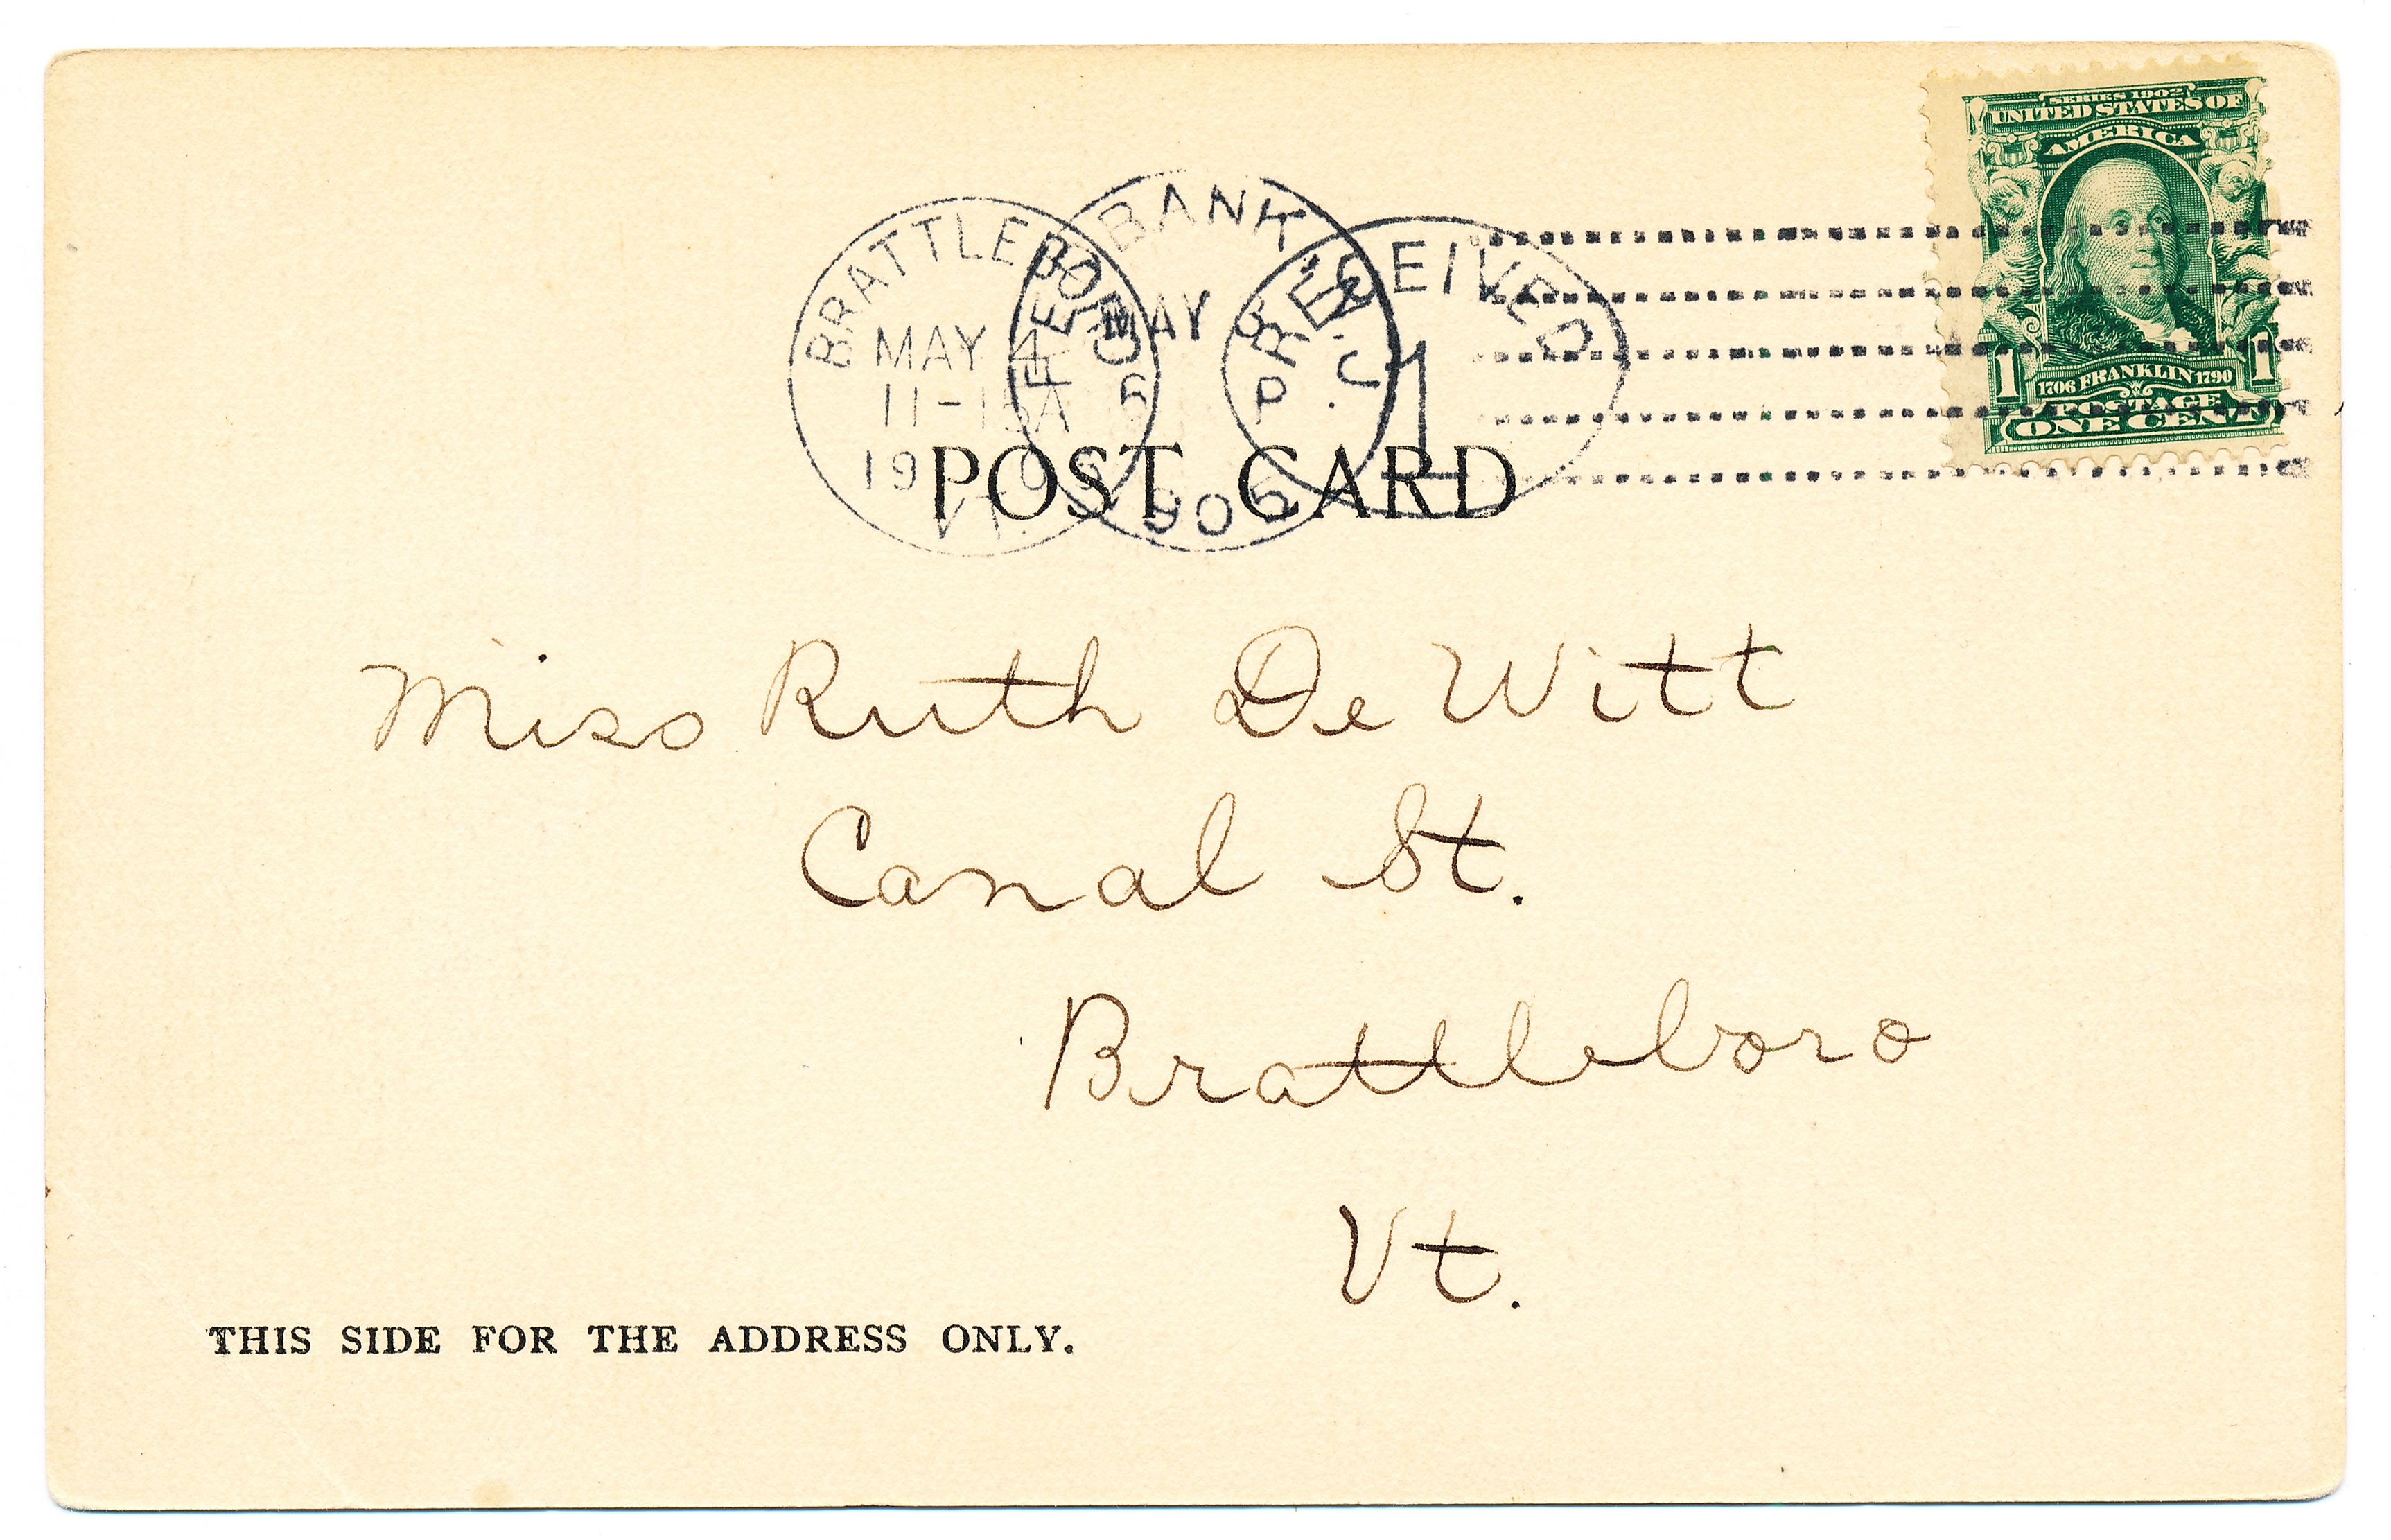 SERIES 1902
UNITED STATES OF
AMERICA
1706 FRANKLIN 1790
1 1
POSTAGE
ONE CENT
BRATTLEBORO
MAY
11-15A
19
VT.
RED BANK
MAY
P
RECEIVED
1
POST CARD
Miss Ruth De Witt
Canal St.
Brattleboro
Vt.
THIS SIDE FOR THE ADDRESS ONLY.